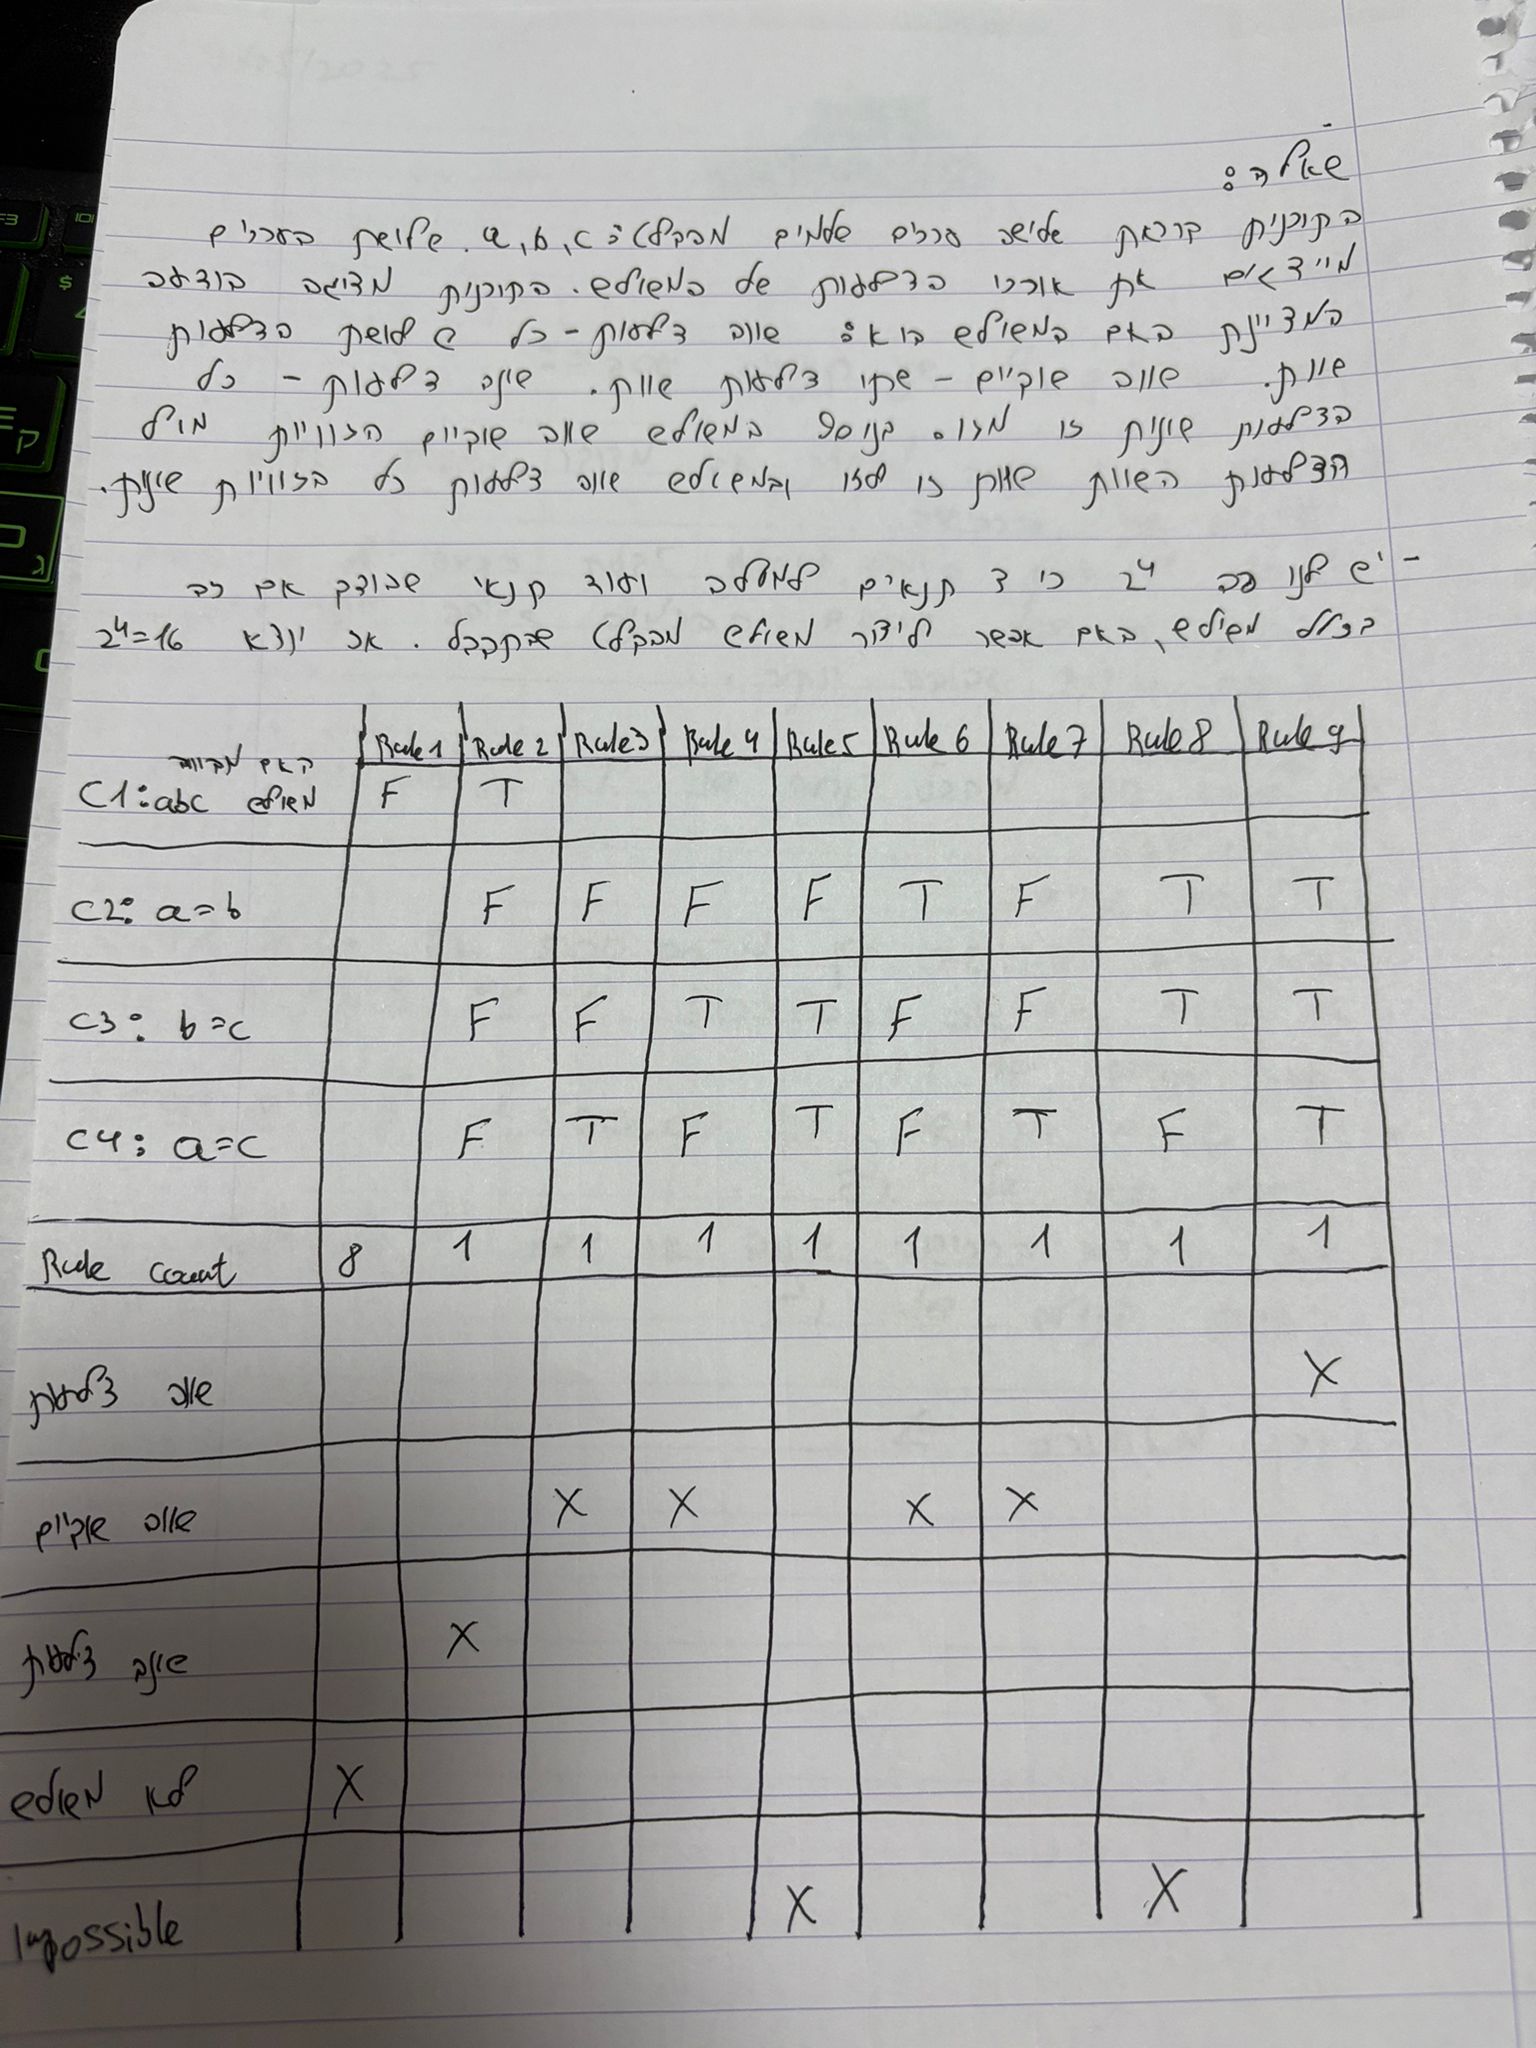 שאלה:
התוכנית קוראת שלושה ערכים שלמים מהקלט: a, b, c. שלושת הערכים
מייצגים את אורכי הצלעות של המשולש. התוכנית מציגה הודעה
המציינת האם המשולש הוא: שווה צלעות - כל שלושת הצלעות
שוות. שווה שוקיים - שתי צלעות שוות. שונה צלעות - כל
הצלעות שונות זו מזו. בנוסף במשולש שווה שוקיים הזוויות מול
הצלעות השוות שוות זו לזו ובמשולש שונה צלעות כל הזוויות שונות.
- יש לנו פה 2⁴ כי 3 תנאים למעלה ועוד תנאי שבודק אם זה
בכלל משולש, האם אפשר ליצור משולש מהקלט שהתקבל. אז יוצא 2⁴=16
Rule 1 Rule 2 Rule 3 Rule 4 Rule 5 Rule 6 Rule 7 Rule 8 Rule 9
C1: abc האם מהווה משולש F T
C2: a=b F F F F T F T T
C3: b=c F F T T F F T T
C4: a=c F T F T F T F T
Rule count 8 1 1 1 1 1 1 1 1
שווה צלעות X
שווה שוקיים X X X X
שונה צלעות X
לא משולש X
Impossible X X